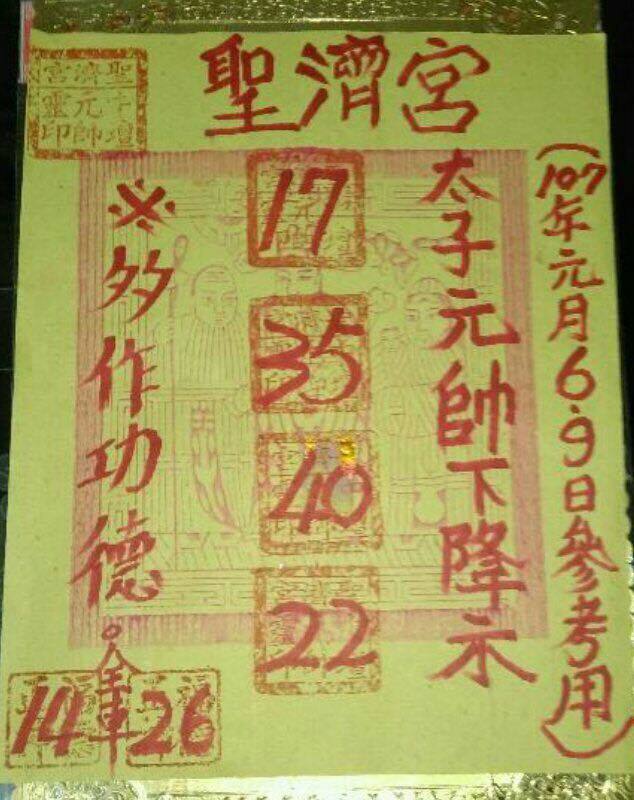 聖濟宮
(107年元月6.9日參考用)
太子元帥下降示
17
35
40
22
※多作功德。
14全車26
宮濟聖
靈元
印帥壇